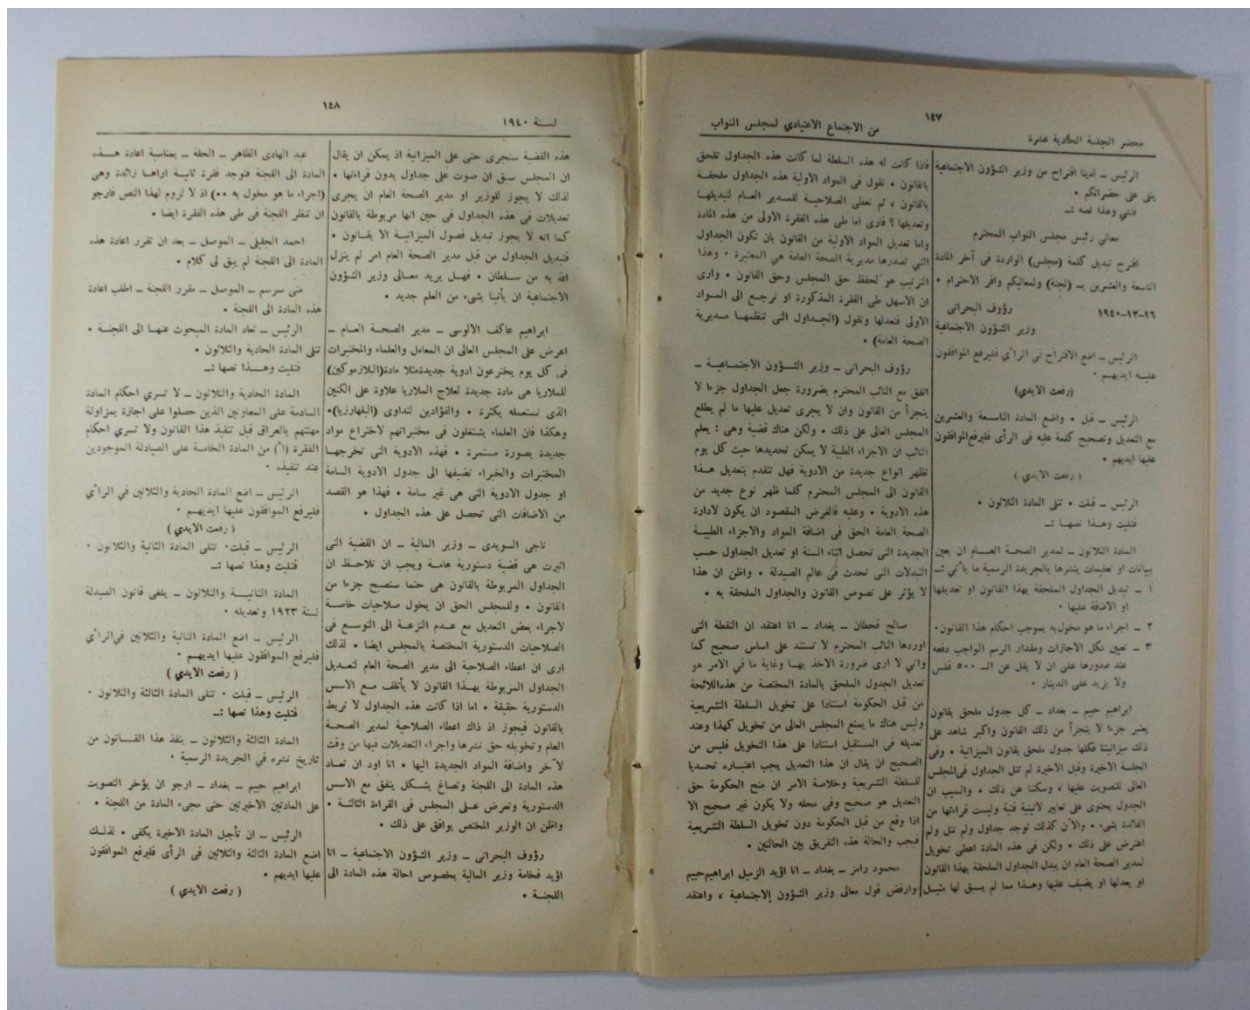 ١٤٧
محضر الجلسة الحادية عشرة
من الاجتماع الاعتيادي لمجلس النواب
الرئيس ــ لدينا اقتراح من وزير الشؤون الاجتماعية
يتلى على حضراتكم ٠
فتلي وهذا نصه :ــ
معالي رئيس مجلس النواب المحترم
اقترح تبديل كلمة (مجلس) الواردة في آخر المادة
التاسعة والعشرين بـ (لجنة) ولمعاليكم وافر الاحترام ٠
رؤوف البحراني
١٦-١٢-١٩٤٠
وزير الشؤون الاجتماعية
الرئيس ــ اضع الاقتراح في الرأي فليرفع الموافقون
عليه ايديهم ٠
(رفعت الايدي)
الرئيس ــ قبل ٠ واضع المادة التاسعة والعشرين
مع التعديل وتصحيح كلمة عليه في الرأى فليرفع الموافقون
عليها ايديهم ٠
( رفعت الايدي )
الرئيس ــ قبلت ٠ تتلى المادة الثلاثون ٠
فتليت وهذا نصها :ــ
المادة الثلاثون ــ لمدير الصحة العام ان يعين
ببيانات او تعليمات ينشرها بالجريدة الرسمية ما يأتي :ــ
١ ــ تبديل الجداول الملحقة بهذا القانون او تعديلها
او الاضافة عليها ٠
٢ ــ اجراء ما هو مخول به بموجب احكام هذا القانون٠
٣ ــ تعيين شكل الاجازات ومقدار الرسم الواجب دفعه
عند صدورها على ان لا يقل عن الـ ٥٠٠ فلس
ولا يزيد على الدينار ٠
ابراهيم حييم ــ بغداد ــ كل جدول ملحق بقانون
يعتبر جزءا لا يتجزأ من ذلك القانون واكبر شاهد على
ذلك ميزانيتنا فكلها جدول ملحق بقانون الميزانية ٠ وفي
الجلسة الاخيرة وقبل الاخيرة لم تتل الجداول في المجلس
العالى للتصويت عليها ، وسكتنا عن ذلك ٠ والسبب ان
الجدول يحتوى على تعابير لاتينية فنية وليست قراءتها من
الفائدة بشيء ٠ والآن كذلك توجد جداول ولم تتل ولم
اعترض على ذلك ٠ ولكن في هذه المادة اعطى تخويل
لمدير الصحة العام ان يبدل الجداول الملحقة بهذا القانون
او يعدلها او يضيف عليها وهذا مما لم يسبق لها مثيل
فاذا كانت له هذه السلطة لما كانت هذه الجداول تلحق
بالقانون ٠ نقول في المواد الاولية هذه الجداول ملحقة
بالقانون ، ثم نعطى الصلاحية للمدير العام لتبديلها
وتعديلها ؟ فارى اما طي هذه الفقرة الاولى من هذه المادة
واما تعديل المواد الاولية من القانون بان تكون الجداول
التي تصدرها مديرية الصحة العامة هي المعتبرة ٠ وهذا
الترتيب هو لحفظ حق المجلس وحق القانون ٠ وارى
ان الاسهل طى الفقرة المذكورة او نرجع الى المواد
الاولى فنعدلها ونقول (الجداول التى تنظمها مديرية
الصحة العامة) ٠
رؤوف البحرانى ــ وزير الشؤون الاجتماعية ــ
اتفق مع النائب المحترم بضرورة جعل الجداول جزءا لا
يتجزأ من القانون وان لا يجرى تعديل عليها ما لم يطلع
المجلس العالى على ذلك ٠ ولكن هناك قضية وهى : يعلم
النائب ان الاجزاء الطبية لا يمكن تحديدها حيث كل يوم
تظهر انواع جديدة من الادوية فهل نتقدم بتعديل هذا
القانون الى المجلس المحترم كلما ظهر نوع جديد من
هذه الادوية ٠ وعليه فالغرض المقصود ان يكون لادارة
الصحة العامة الحق في اضافة المواد والاجزاء الطبية
الجديدة التى تحصل اثناء السنة او تعديل الجداول حسب
التبدلات التى تحدث في عالم الصيدلة ٠ واظن ان هذا
لا يؤثر على نصوص القانون والجداول الملحقة به ٠
صالح قحطان ــ بغداد ــ انا اعتقد ان النقطة التى
اوردها النائب المحترم لا تستند على اساس صحيح كما
واني لا ارى ضرورة الاخذ بها وغاية ما في الامر هو
تعديل الجدول الملحق بالمادة المختصة من هذه اللائحة
من قبل الحكومة استنادا على تخويل السلطة التشريعية
وليس هناك ما يمنع المجلس العالى من تخويل كهذا وعند
تعديله في المستقبل استنادا على هذا التخويل فليس من
الصحيح ان يقال ان هذا التعديل يجب اعتباره تحديا
للسلطة التشريعية وخلاصة الامر ان منح الحكومة حق
التعديل هو صحيح وفى محله ولا يكون غير صحيح الا
اذا وقع من قبل الحكومة دون تخويل السلطة التشريعية
فيجب والحالة هذه التفريق بين الحالتين ٠
محمود رامز ــ بغداد ــ انا اؤيد الزميل ابراهيم حييم
وارفض قول معالى وزير الشؤون الاجتماعية ، واعتقد
١٤٨
لسنة ١٩٤٠
هذه القضية ستجرى حتى على الميزانية اذ يمكن ان يقال
ان المجلس سبق ان صوت على جداول بدون قراءتها ٠
لذلك لا يجوز للوزير او مدير الصحة العام ان يجرى
تعديلات في هذه الجداول في حين انها مربوطة بالقانون
كما انه لا يجوز تبديل فصول الميزانية الا بقانون ٠
فتبديل الجداول من قبل مدير الصحة العام امر لم ينزل
الله به من سلطان ٠ فهل يريد معالى وزير الشؤون
الاجتماعية ان يأتينا بشىء من العلم جديد ٠
ابراهيم عاكف الالوسى ــ مدير الصحة العام ــ
اعرض على المجلس العالى ان المعامل والعلماء والمختبرات
في كل يوم يخترعون ادوية جديدة مثلا مادة (البلازموكين)
للملاريا هى مادة جديدة لعلاج الملاريا علاوة على الكنين
الذى نستعمله بكثرة ٠ والفؤادين لتداوى (البلهارزيا)٠
وهكذا فان العلماء يشتغلون في مختبراتهم لاختراع مواد
جديدة بصورة مستمرة ٠ فهذه الادوية التى تخرجها
المختبرات والخبراء نضيفها الى جدول الادوية السامة
او جدول الادوية التى هى غير سامة ٠ فهذا هو القصد
من الاضافات التى تحصل على هذه الجداول ٠
ناجى السويدى ــ وزير المالية ــ ان القضية التى
اثيرت هى قضية دستورية هامة ويجب ان نلاحظ ان
الجداول المربوطة بالقانون هى حتما ستصبح جزءا من
القانون ٠ وللمجلس الحق ان يخول صلاحيات خاصة
لاجراء بعض التعديل مع عدم النزعة الى التوسع في
الصلاحيات الدستورية المختصة بالمجلس ايضا ٠ لذلك
ارى ان اعطاء الصلاحية الى مدير الصحة العام لتعديل
الجداول المربوطة بهذا القانون لا يأتلف مع الاسس
الدستورية حقيقة ٠ اما اذا كانت هذه الجداول لا تربط
بالقانون فيجوز اذ ذاك اعطاء الصلاحية لمدير الصحة
العام وتخويله حق نشرها واجراء التعديلات فيها من وقت
لآخر واضافة المواد الجديدة اليها ٠ انا اود ان تعاد
هذه المادة الى اللجنة وتصاغ بشكل يتفق مع الاسس
الدستورية وتعرض على المجلس في القراءة الثالثة ٠
واظن ان الوزير المختص يوافق على ذلك ٠
رؤوف البحرانى ــ وزير الشؤون الاجتماعية ــ انا
اؤيد فخامة وزير المالية بخصوص احالة هذه المادة الى
اللجنة ٠
عبد الهادى الظاهر ــ الحلة ــ بمناسبة اعادة هذه
المادة الى اللجنة فتوجد فقرة ثانية اراها زائدة وهى
(اجراء ما هو مخول به ٠٠) اذ لا لزوم لهذا النص فارجو
ان تنظر اللجنة في طى هذه الفقرة ايضا ٠
احمد الجليلى ــ الموصل ــ بعد ان تقرر اعادة هذه
المادة الى اللجنة لم يبق لى كلام ٠
متى سرسم ــ الموصل ــ مقرر اللجنة ــ اطلب اعادة
هذه المادة الى اللجنة ٠
الرئيس ــ تعاد المادة المبحوث عنها الى اللجنة ٠
تتلى المادة الحادية والثلاثون ٠
فتليت وهذا نصها :ــ
المادة الحادية والثلاثون ــ لا تسري احكام المادة
السادسة على المعاونين الذين حصلوا على اجازة بمزاولة
مهنتهم بالعراق قبل تنفيذ هذا القانون ولا تسري احكام
الفقرة (أ) من المادة الخامسة على الصيادلة الموجودين
عند تنفيذه ٠
الرئيس ــ اضع المادة الحادية والثلاثين في الرأي
فليرفع الموافقون عليها ايديهم ٠
( رفعت الايدي )
الرئيس ــ قبلت٠ تتلى المادة الثانية والثلاثون ٠
فتليت وهذا نصها :ــ
المادة الثانية والثلاثون ــ يلغى قانون الصيدلة
لسنة ١٩٢٣ وتعديله ٠
الرئيس ــ اضع المادة الثانية والثلاثين في الرأي
فليرفع الموافقون عليها ايديهم ٠
( رفعت الايدي )
الرئيس ــ قبلت ٠ تتلى المادة الثالثة والثلاثون ٠
فتليت وهذا نصها :ــ
المادة الثالثة والثلاثون ــ ينفذ هذا القانون من
تاريخ نشره في الجريدة الرسمية ٠
ابراهيم حييم ــ بغداد ــ ارجو ان يؤخر التصويت
على المادتين الاخيرتين حتى مجىء المادة من اللجنة ٠
الرئيس ــ ان تأجيل المادة الاخيرة يكفى ٠ لذلك
اضع المادة الثالثة والثلاثين في الرأى فليرفع الموافقون
عليها ايديهم ٠
( رفعت الايدي )